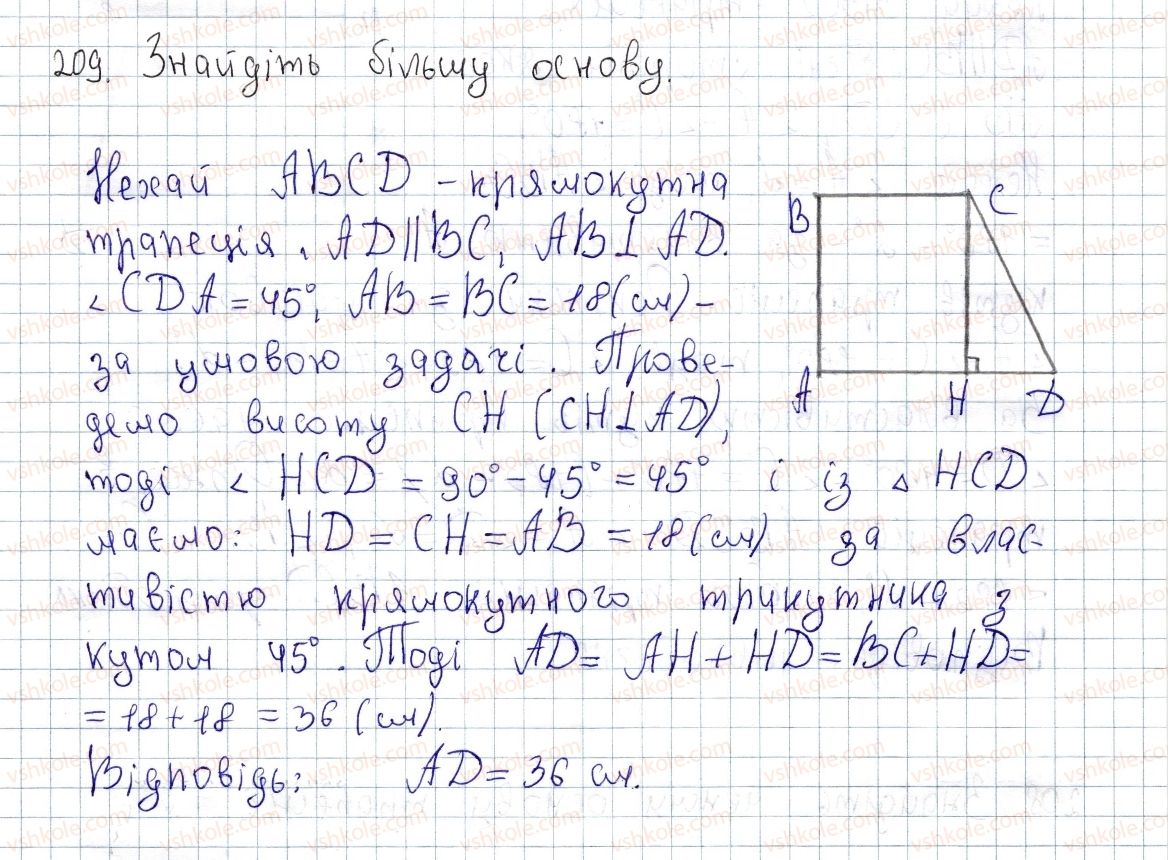 209. Знайдіть більшу основу.
Нехай ABCD - прямокутна
трапеція. AD||BC, AB⊥AD.
∠CDA = 45°, AB = BC = 18(см) -
за умовою задачі. Прове-
демо висоту CH (CH⊥AD),
тоді ∠HCD = 90° - 45° = 45° і із △HCD
маємо: HD = CH = AB = 18(см) за влас-
тивістю прямокутного трикутника з
кутом 45°. Тоді AD = AH + HD = BC + HD =
= 18 + 18 = 36 (см).
Відповідь: AD = 36 см.
B C
A H D